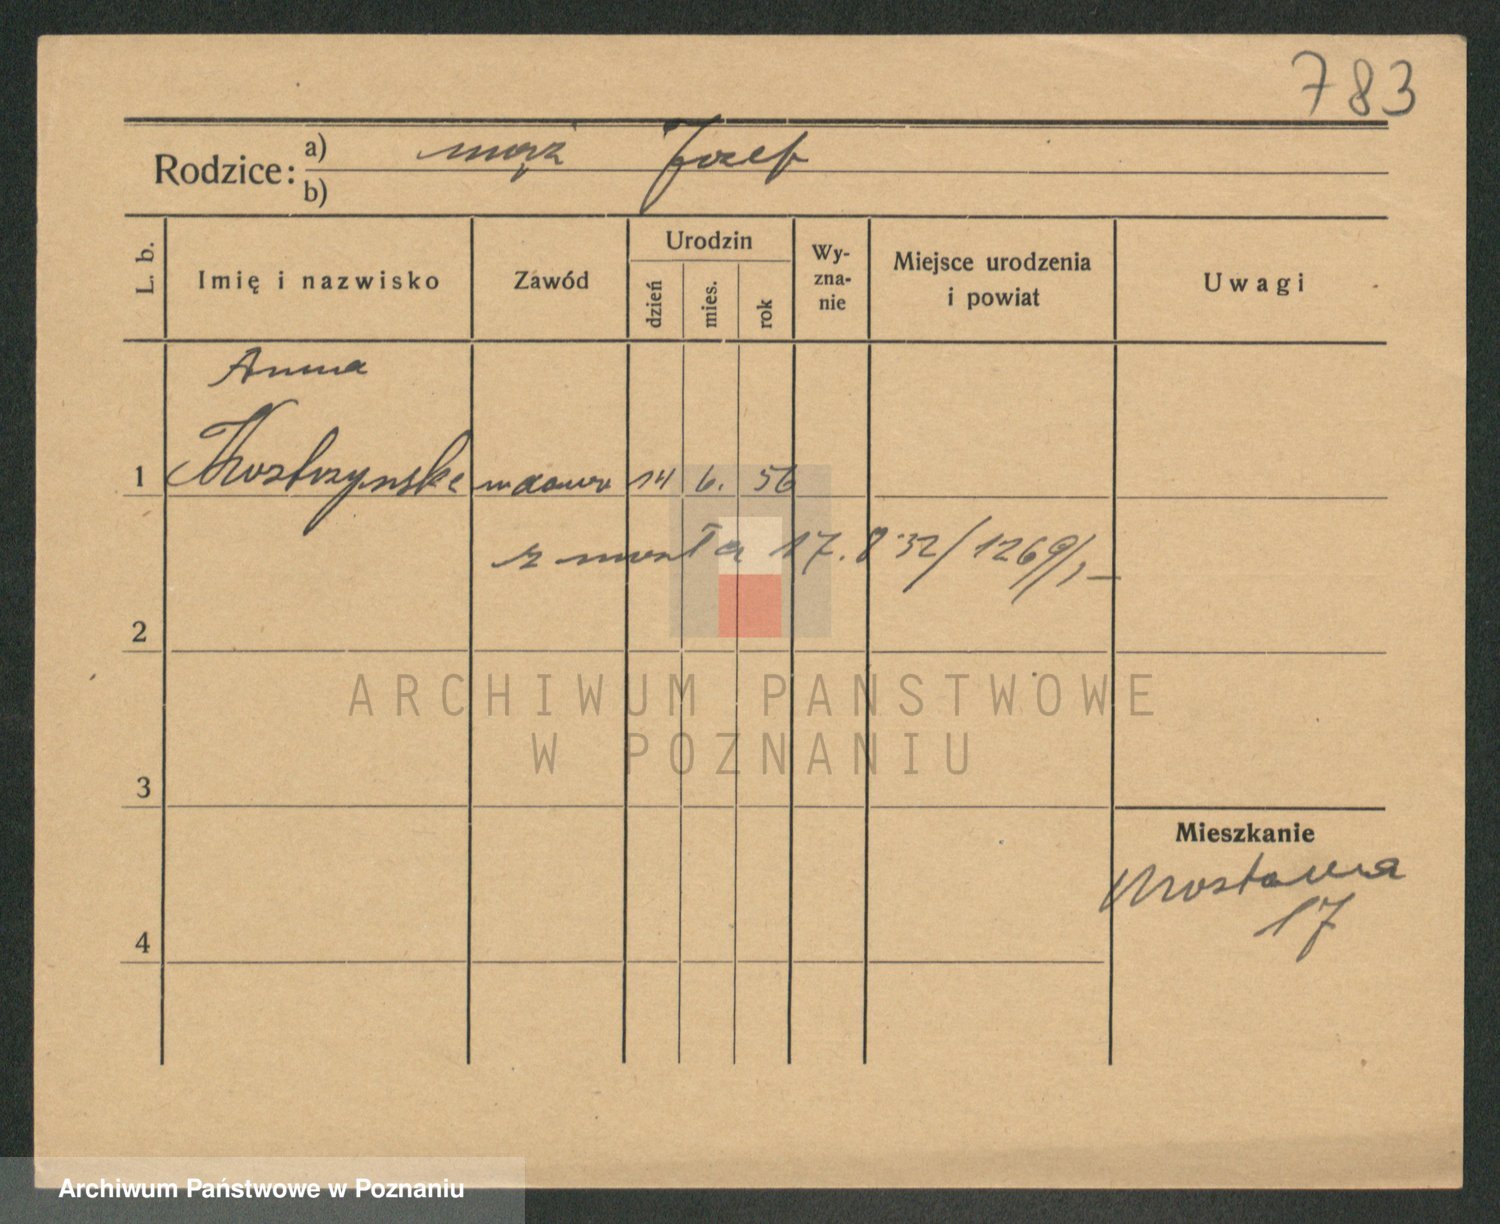 783
Rodzice: a) mąż Józef
b)
L. b.
Imię i nazwisko
Zawód
Urodzin
dzień
mies.
rok
Wy-
zna-
nie
Miejsce urodzenia
i powiat
Uwagi
Anna
1 Kostrzynska wdowa 14 6. 56
zmarła 17.8 32/1269/,-
2
ARCHIWUM PANSTWOWE
W POZNANIU
3
Mieszkanie
Mostowa
17
4
Archiwum Państwowe w Poznaniu